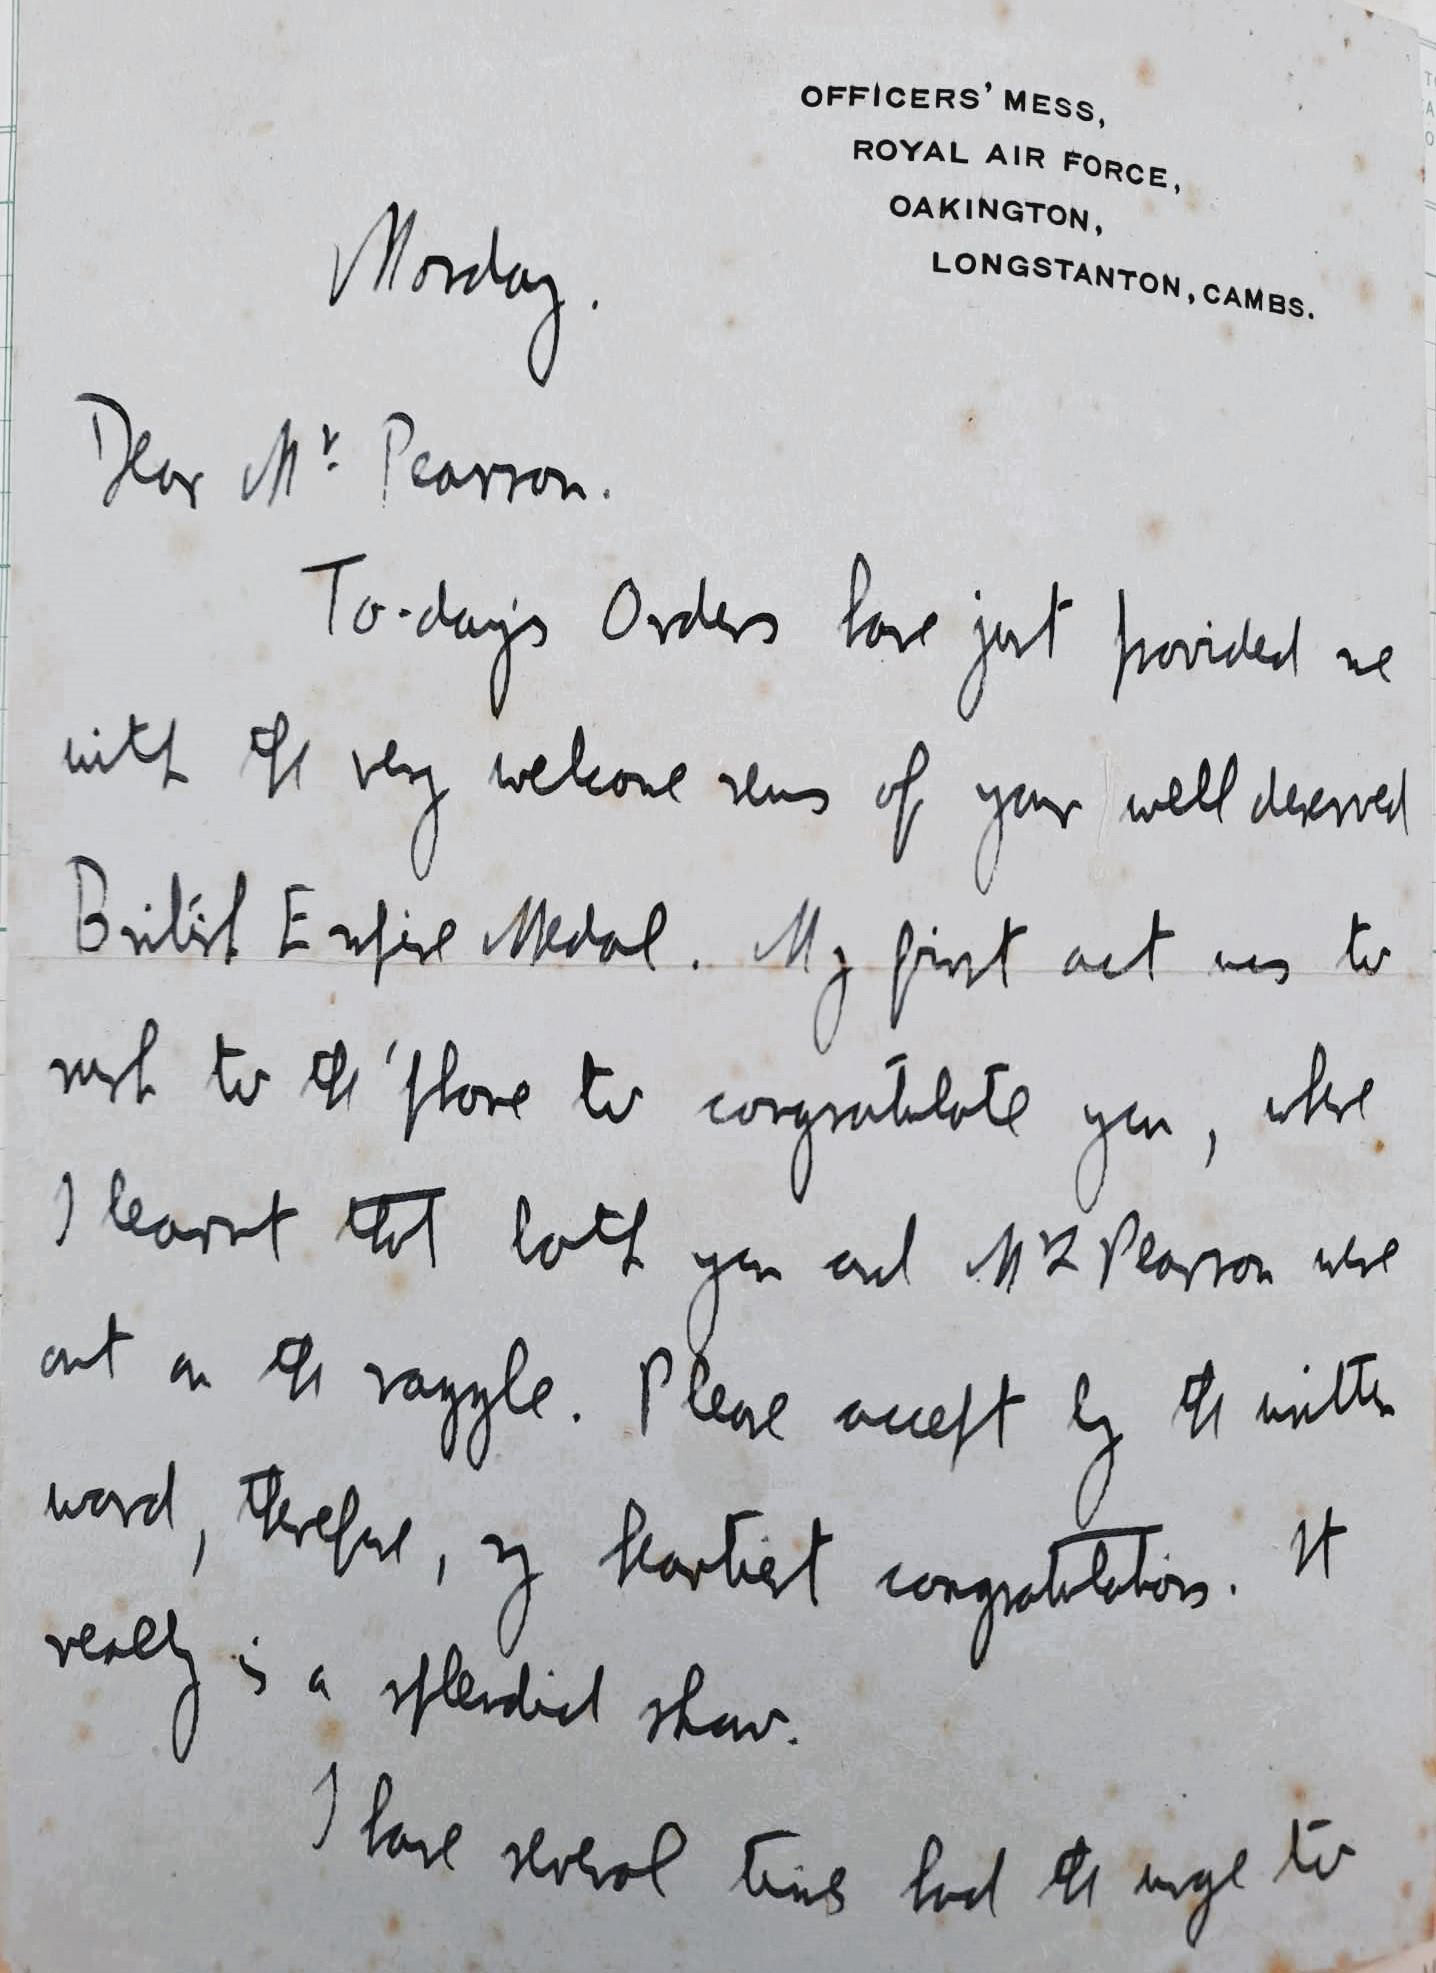 OFFICERS' MESS,
ROYAL AIR FORCE,
OAKINGTON,
LONGSTANTON, CAMBS.
Monday.
Dear Mr. Pearson.
To-day's Orders have just provided me
with the very welcome news of your well deserved
British Empire Medal. My first act was to
rush to the 'phone to congratulate you, where
I learnt that both you and Mrs Pearson were
out on the razzle. Please accept by the written
word, therefore, my heartiest congratulations. It
really is a splendid show.
I have several times had the urge to